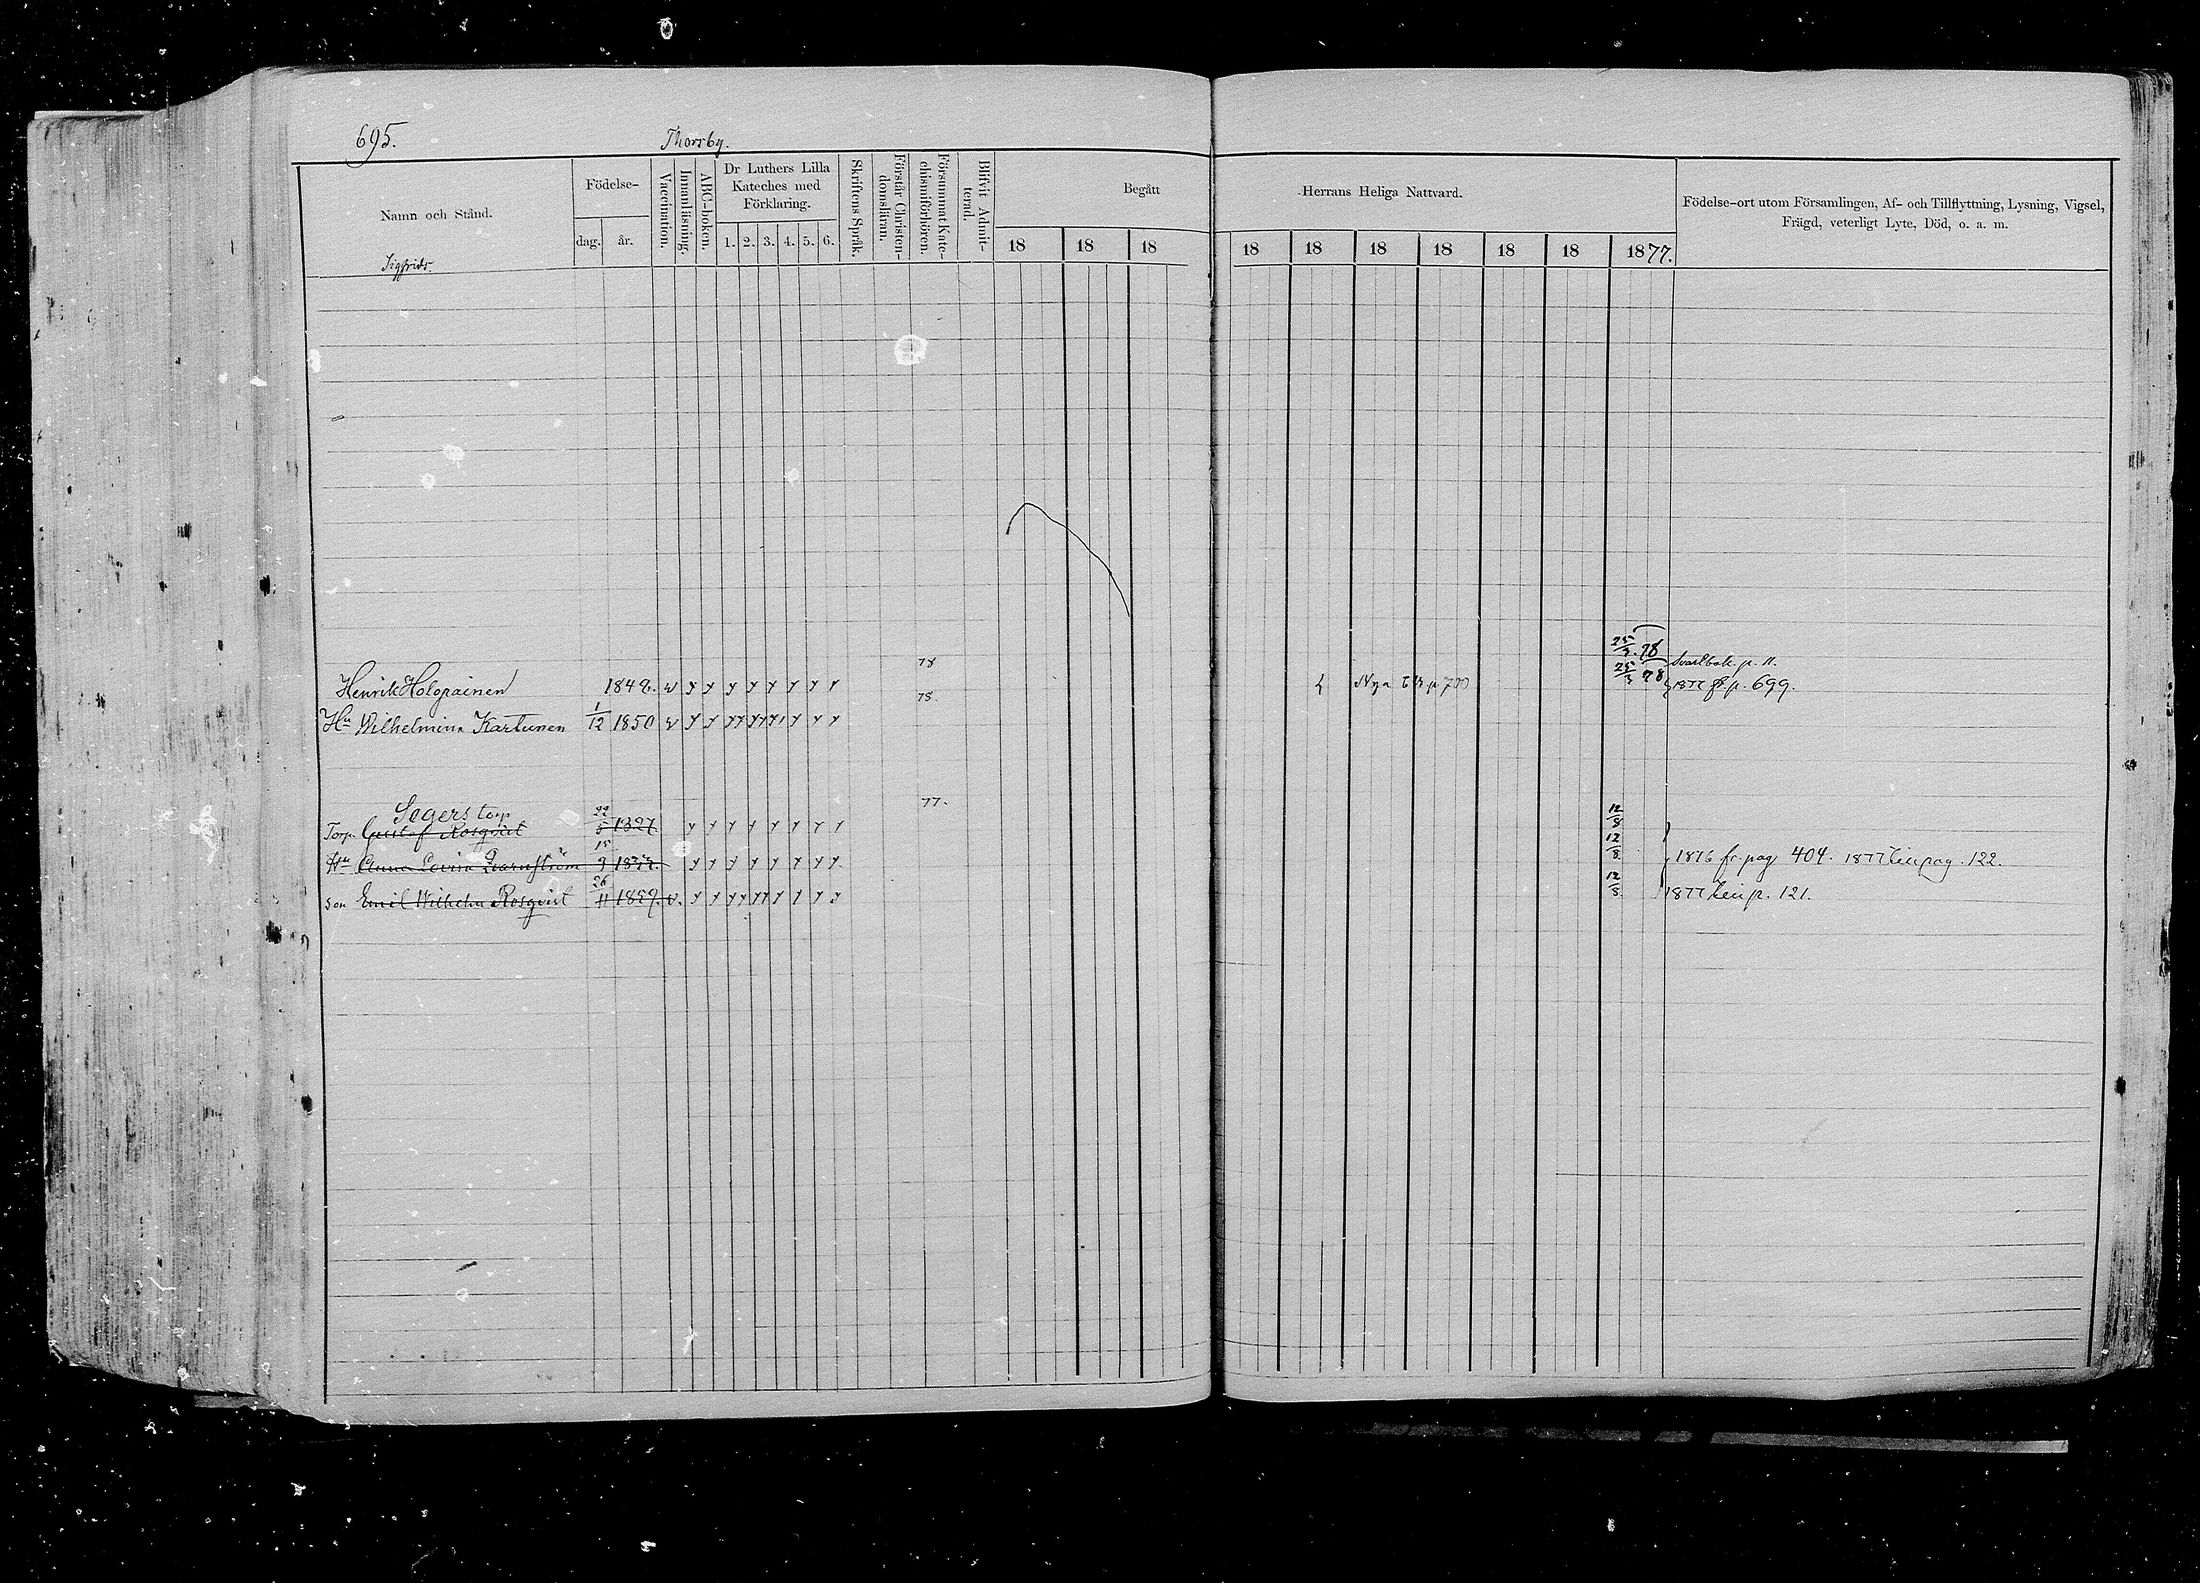 695. Thorsby.
Namn och Stånd. Födelse- dag. år. Vaccination. Innanläsning. ABC-boken. Dr Luthers Lilla Kateches med Förklaring. 1. 2. 3. 4. 5. 6. Skriftens Språk. Förstår Christendomsläran. Försummat Katechismiförhören. Blifvit Admitterad. Begått Herrans Heliga Nattvard. Födelse-ort utom Församlingen, Af- och Tillflyttning, Lysning, Vigsel, Frägd, veterligt Lyte, Död, o. a. m.
18 18 18 18 18 18 18 18 18 1877.
Sigfrids
78 25/3 78 Svartbok. p. 11.
Henrik Holopainen 1848. v y y y y y y y y 78. Nya p 700 25/3 78 1877 fr. p. 699.
Hu Wilhelmina Kartunen 1/12 1850 v y y yy yy y y y y
Segerstorp 77.
Torp. Gustaf Rosqvist 22/5 1827. y y y y y y y y 12/8
Hu Anna Lovisa 15/9 y y y y y y y y 12/8 1876 fr. pag 404. 1877 till pag. 122.
son Emil Wilhelm Rosqvist 26/11 1859. v. y y yy yy y y y y 12/8 1877 till p. 121.